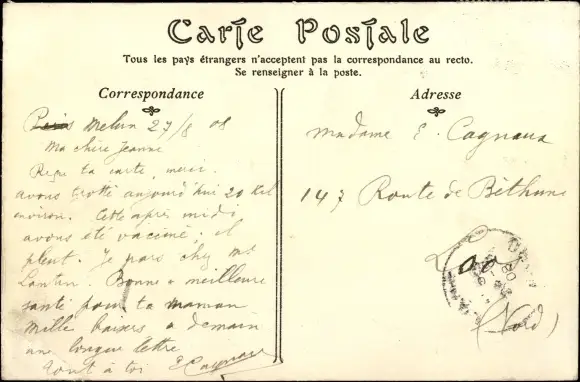 Carte Postale
Tous les pays étrangers n'acceptent pas la correspondance au recto.
Se renseigner à la poste.
Correspondance
Adresse
Melun 27/8 08
Ma chère Jeanne
Reçue ta carte, merci.
avons trotté aujourd'hui 20 Kil
environ. Cette après midi
avons été vacciné; il
pleut. Je pars chez
Bonne + meilleure
santé pour ta maman
Mille baisers à demain
une longue lettre
Tout à toi E Cagnaux
Madame E. Cagnaux
147 Route de Béthune
(Nord)